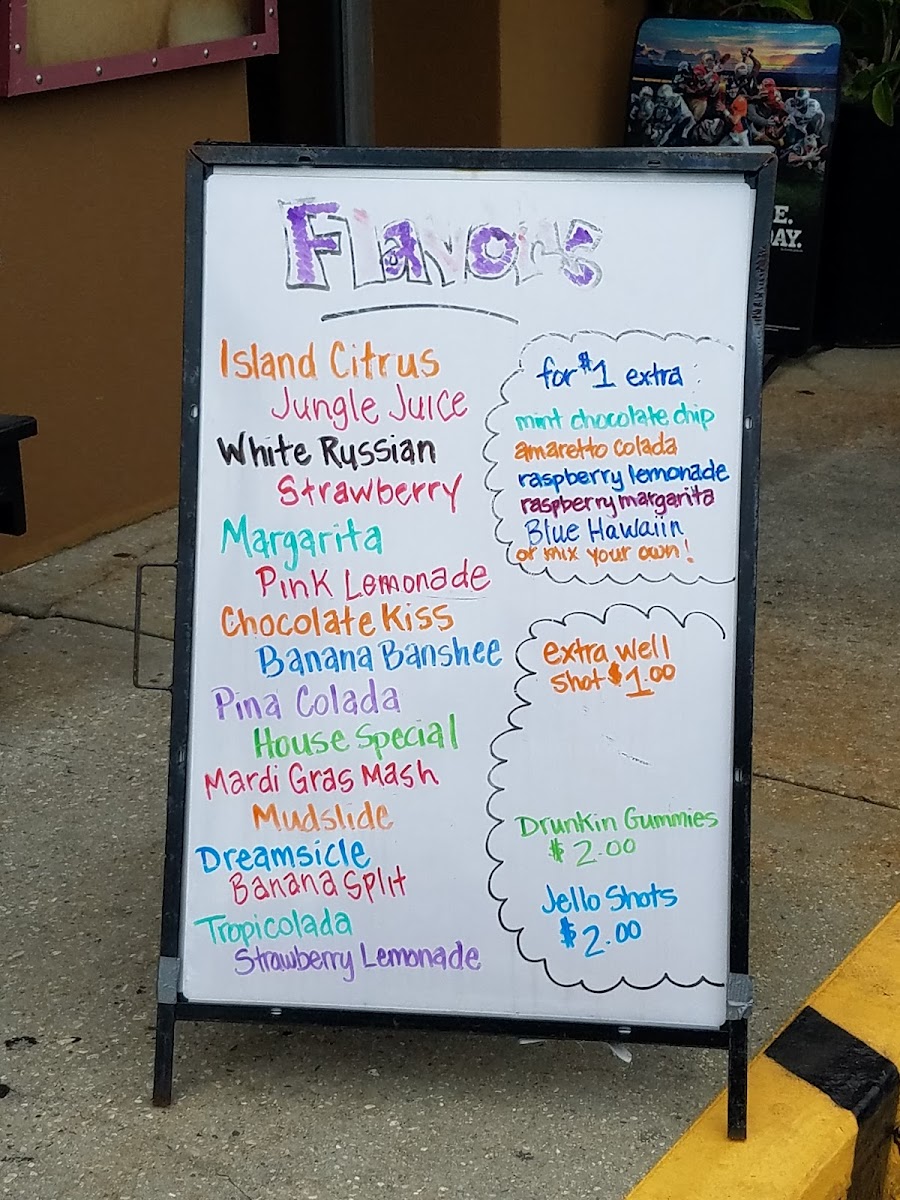 Flavors
Island Citrus
Jungle Juice
White Russian
Strawberry
Margarita
Pink Lemonade
Chocolate Kiss
Banana Banshee
Pina Colada
House Special
Mardi Gras Mash
Mudslide
Dreamsicle
Banana Split
Tropicolada
Strawberry Lemonade
for $1 extra
mint chocolate chip
amaretto colada
raspberry lemonade
raspberry margarita
Blue Hawaiin
or mix your own!
extra well
shot $1.00
Drunkin Gummies
$2.00
Jello Shots
$2.00
E.
AY.